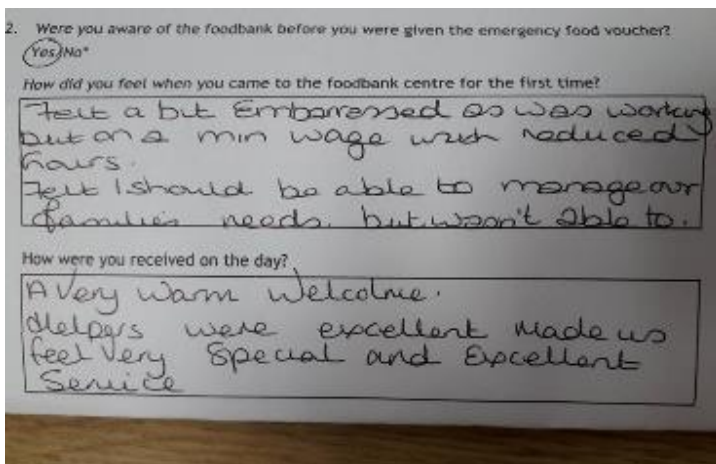 2. Were you aware of the foodbank before you were given the emergency food voucher?
Yes/No*
How did you feel when you came to the foodbank centre for the first time?
Felt a bit Embaressed as was working
but on a min wage with reduced
hours.
Felt I should be able to manage our
families needs. but wasn't able to.
How were you received on the day?
A Very Warm Welcome.
Helpers were excellent made us
feel very Special and Excellent
Service